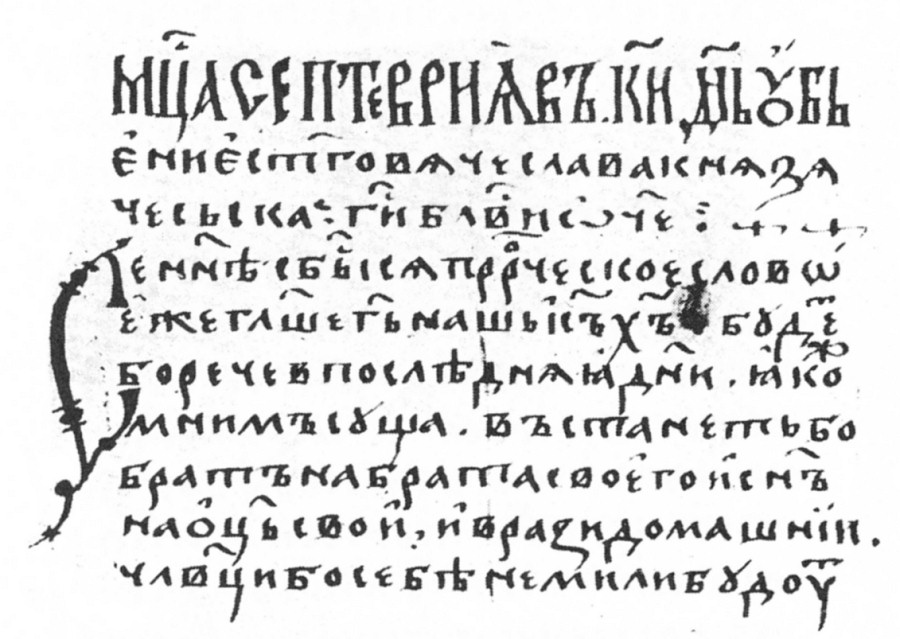 МЦ҃А СЕПТЕВРИѦ ВЪ. К҃И. ДН҃Ь ОУ҆БЬ
е҆ние҆ ст҃го вѧчеслава кнѧзѧ
чесьска⁘ гн҃и бл҃ви ѡч҃е ⁘
Се нн҃ѣ сбы́сѧ прⷪ҇ческое слово ѡ҆́
е҆же гл҃аше г҃ь нашь іс҃ъ х҃ъ • бꙋдеⷮ
бо рече в послѣднѧꙗ дн҃и . ꙗкоⷤ
мнимъ сꙋща . Въстанеть бо
братъ на брата своего и҆ сн҃ъ
на оц҃ь свои҆, и҆ врази домашнїи .
чл҃вци бо себѣ не мили бꙋдоуⷮ